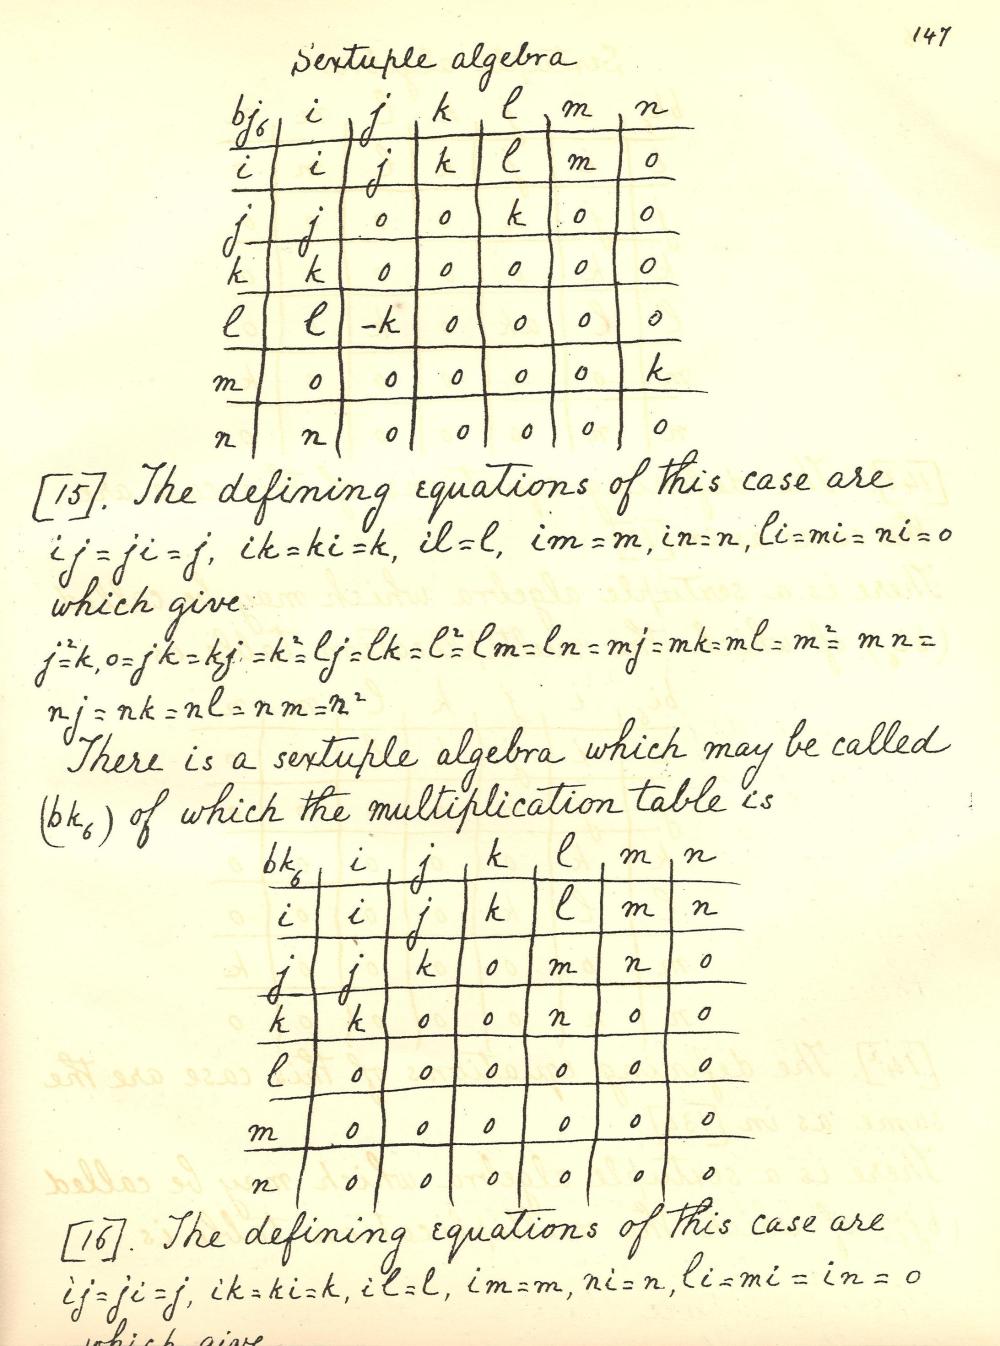 147
Sextuple algebra
bj₆ i j k l m n
i i j k l m 0
j j 0 0 k 0 0
k k 0 0 0 0 0
l l -k 0 0 0 0
m 0 0 0 0 0 k
n n 0 0 0 0 0
[15]. The defining equations of this case are
ij = ji = j, ik = ki = k, il = l, im = m, in = n, li = mi = ni = 0
which give
j² = k, 0 = jk = kj = k² = lj = lk = l² = lm = ln = mj = mk = ml = m² = mn =
nj = nk = nl = nm = n²
There is a sextuple algebra which may be called
(bk₆) of which the multiplication table is
bk₆ i j k l m n
i i j k l m n
j j k 0 m n 0
k k 0 0 n 0 0
l 0 0 0 0 0 0
m 0 0 0 0 0 0
n 0 0 0 0 0 0
[16]. The defining equations of this case are
ij = ji = j, ik = ki = k, il = l, im = m, ni = n, li = mi = in = 0
which give